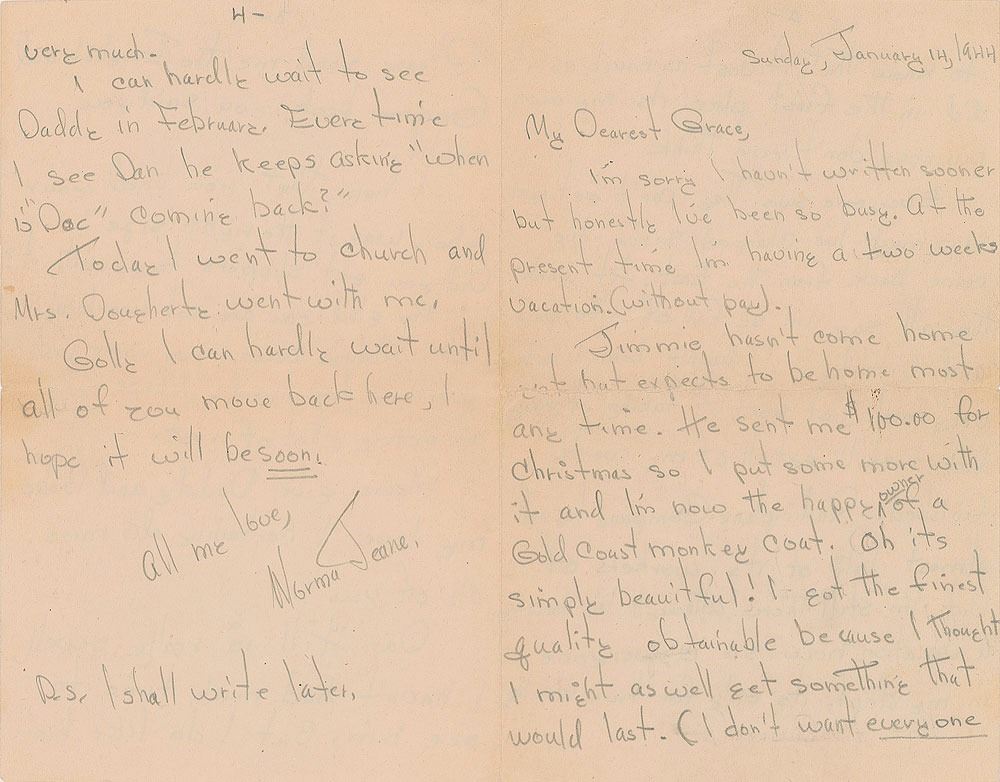 4-
very much.
I can hardly wait to see
Daddy in February. Every time
I see Dan he keeps asking "when
is "Doc" coming back?"
Today I went to church and
Mrs. Dougherty went with me.
Golly I can hardly wait until
all of you move back here, I
hope it will be soon!
all my love,
Norma Jeane.
P.S. I shall write later.
Sunday, January 14, 1944
My Dearest Grace,
I'm sorry I havn't written sooner
but honestly I've been so busy. At the
present time I'm having a two weeks
vacation. (without pay).
Jimmie hasn't come home
yet but expects to be home most
any time. He sent me $100.00 for
Christmas so I put some more with
it and I'm now the happy owner of a
Gold Coast monkey coat. Oh its
simply beauitful! I got the finest
quality obtainable because I thought
I might as well get something that
would last. (I don't want everyone